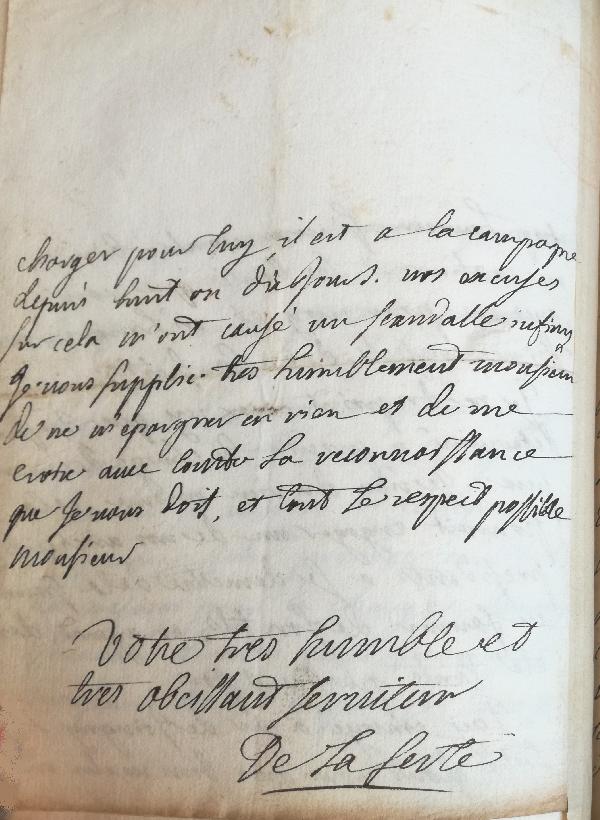 charger pour luy, il est a la campagne
depuis huit ou dix Jours. vos excuses
sur cela m'ont causé un scandalle infiny
Je vous supplie tres humblement monsieur
de ne m'epargner en rien et de me
croire avec toutte la reconnoissance
que Je vous doit, et tout le respect possible
monsieur
Votre tres humble et
tres obeissant serviteur
De La ferté